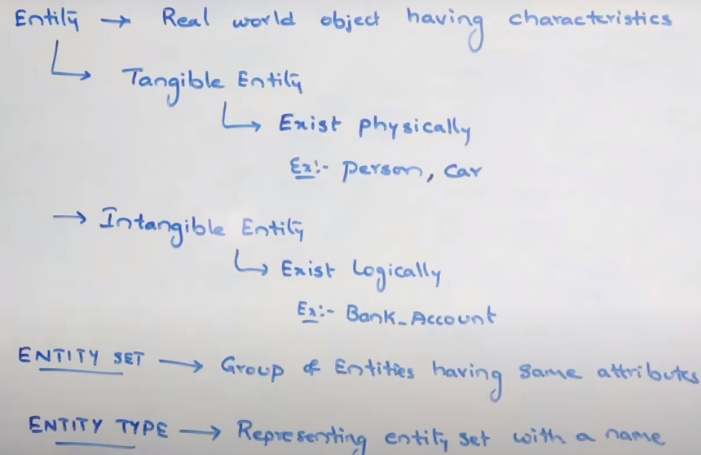 Entity → Real world object having characteristics
↳ Tangible Entity
↳ Exist physically
Ex:- person, car
→ Intangible Entity
↳ Exist Logically
Ex:- Bank_Account
ENTITY SET → Group of Entities having same attributes
ENTITY TYPE → Representing entity set with a name